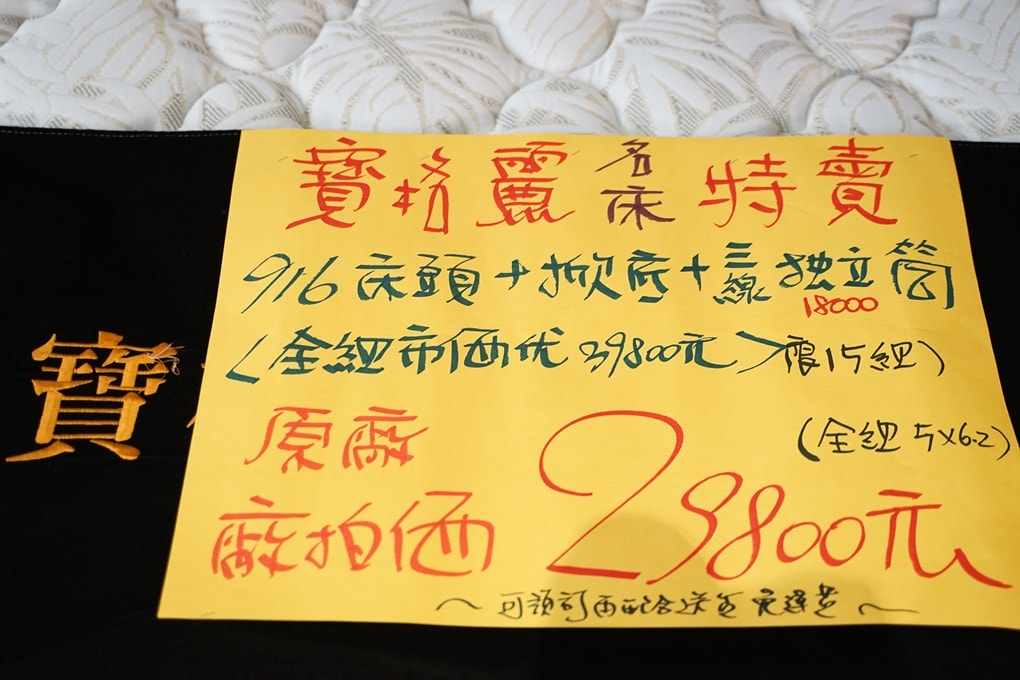 寶格麗名床特賣
916床頭+掀底+三線独立筒
18000
(全組市価优39800元)限15組)
寶
(全組5x6.2)
原廠
廠拍価29800元
~可預訂再配合送全免運费~